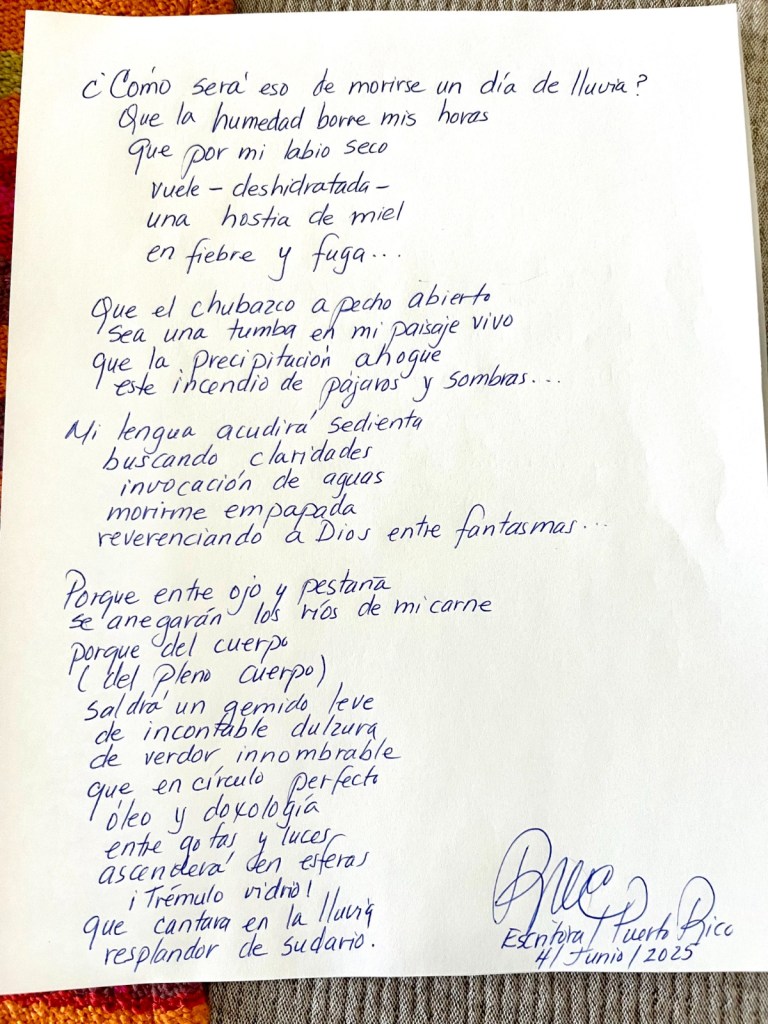 ¿Cómo será eso de morirse un día de lluvia?
Que la humedad borre mis horas
que por mi labio seco
vuele - deshidratada -
una hostia de miel
en fiebre y fuga...
Que el chubazco a pecho abierto
sea una tumba en mi paisaje vivo
que la precipitación ahogue
este incendio de pájaros y sombras...
Mi lengua acudirá sedienta
buscando claridades
invocación de aguas
morirme empapada
reverenciando a Dios entre fantasmas...
Porque entre ojo y pestaña
se anegarán los ríos de mi carne
porque del cuerpo
(del pleno cuerpo)
saldrá un gemido leve
de incontable dulzura
de verdor innombrable
que en círculo perfecto
óleo y doxología
entre gotas y luces
ascenderá en esferas
¡Trémulo vidrio!
que cantara en la lluvia
resplandor de sudario.
Escritora / Puerto Rico
4/Junio/2025